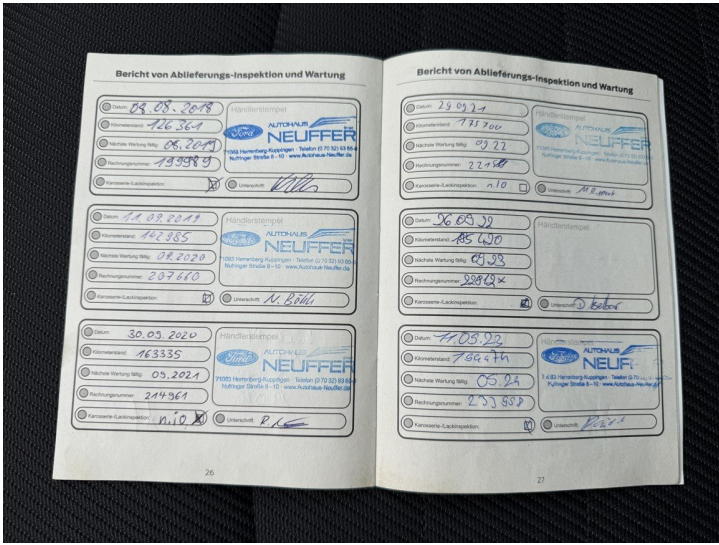 Bericht von Ablieferungs-Inspektion und Wartung
Datum: 08.08.2018
Kilometerstand: 126361
Nächste Wartung fällig: 08.2019
Rechnungsnummer: 199989
Karosserie-/Lackinspektion:
Händlerstempel
Ford AUTOHAUS
NEUFFER
71083 Herrenberg-Kuppingen · Telefon (0 70 32) 93 66-0
Nufringer Straße 8 - 10 · www.Autohaus-Neuffer.de
Unterschrift:
Datum: 11.09.2019
Kilometerstand: 142985
Nächste Wartung fällig: 09.2020
Rechnungsnummer: 207660
Karosserie-/Lackinspektion:
Händlerstempel
Ford AUTOHAUS
NEUFFER
71083 Herrenberg-Kuppingen · Telefon (0 70 32) 93 66
Nufringer Straße 8 - 10 · www.Autohaus-Neuffer.de
Unterschrift:
Datum: 30.09.2020
Kilometerstand: 163335
Nächste Wartung fällig: 09.2021
Rechnungsnummer: 214961
Karosserie-/Lackinspektion: n.io
Händlerstempel
Ford AUTOHAUS
NEUFFER
71083 Herrenberg-Kuppingen · Telefon (0 70 32) 93 66
Nufringer Straße 8 - 10 · www.Autohaus-Neuffer.de
Unterschrift:
26
Bericht von Ablieferungs-Inspektion und Wartung
Datum: 29 09 21
Kilometerstand: 175700
Nächste Wartung fällig: 09 22
Rechnungsnummer:
Karosserie-/Lackinspektion: n.io
Händlerstempel
Ford AUTOHAUS
NEUFFER
Unterschrift:
Datum: 26 09 22
Kilometerstand:
Nächste Wartung fällig: 09 23
Rechnungsnummer:
Karosserie-/Lackinspektion:
Händlerstempel
Unterschrift:
Datum: 11.09.23
Kilometerstand:
Nächste Wartung fällig:
Rechnungsnummer: 233958
Karosserie-/Lackinspektion:
Händlerstempel
Ford AUTOHAUS
NEUF
Herrenberg-Kuppingen · Telefon
Nufringer Straße 8 - 10 · www.Autohaus-Neuffer.de
Unterschrift:
27